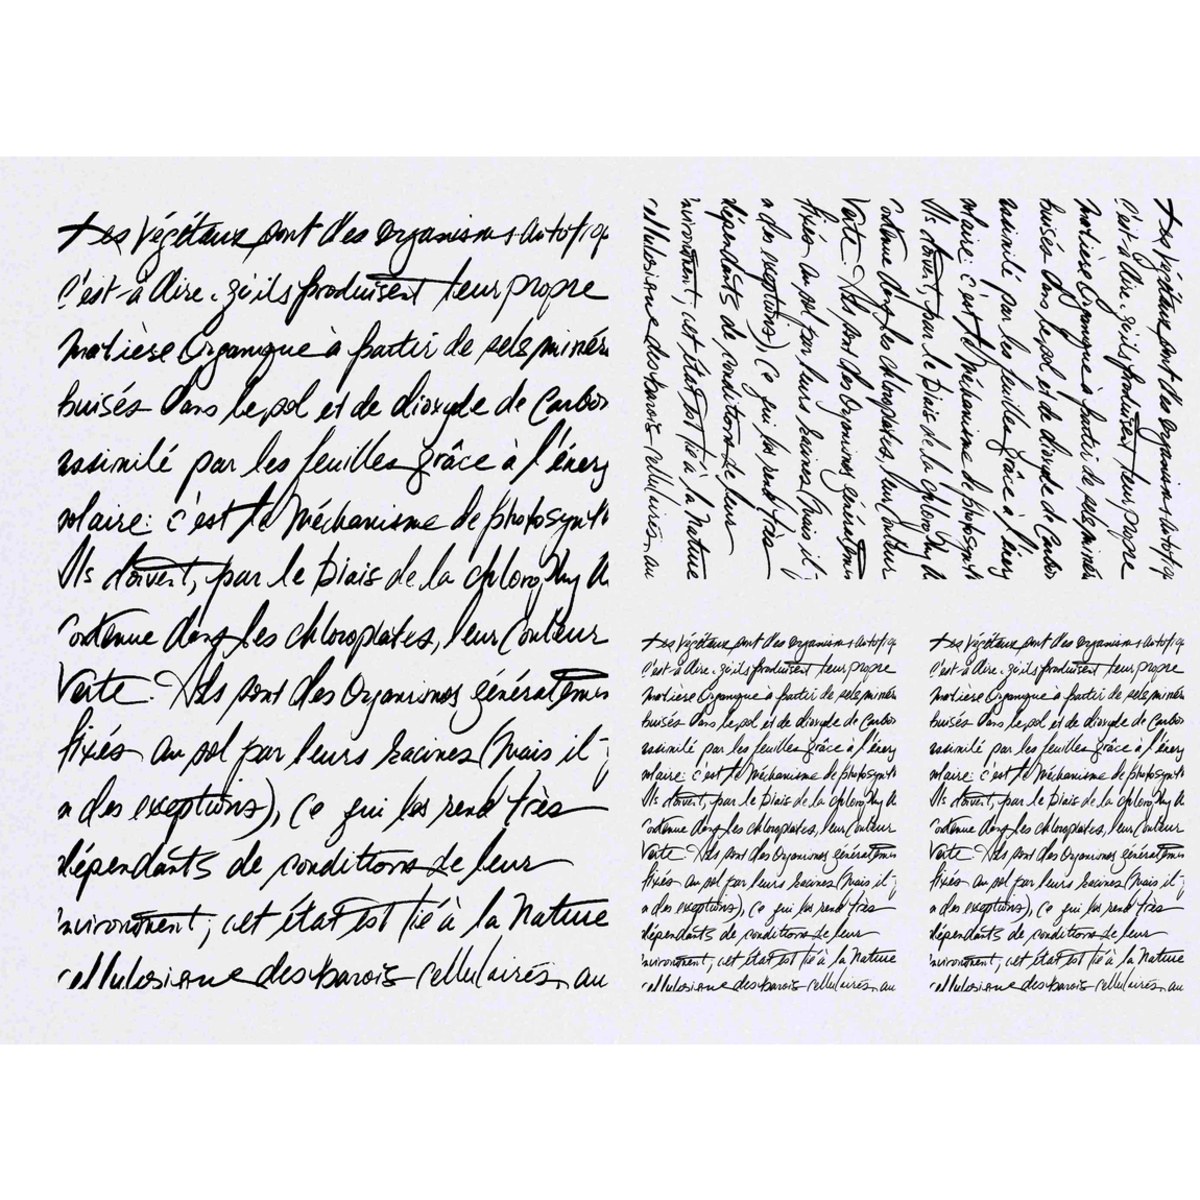 Les végétaux sont des organismes autotrop
C'est-à dire. qu'ils produisent leur propre
matière Organique à partir de sels minér
puisés dans le sol et de dioxyde de Carbon
assimilé par les feuilles grâce à l'énerg
solaire: c'est le Méchanisme de photosynth
Ils doivent, par le biais de la chlorophy
contenue dans les chloroplastes, leur Couleur
Verte. Ils sont des Organismes générallemen
fixés au sol par leurs racines (Mais il y
a des exceptions), Ce qui les rend très
dépendants de conditions de leur
environnement; cet état est lié à la Nature
cellulosique des parois Cellulaires, au
Les végétaux sont des organismes autotrop
C'est-à dire. qu'ils produisent leur propre
matière Organique à partir de sels minér
puisés dans le sol et de dioxyde de Carbon
assimilé par les feuilles grâce à l'énerg
solaire: c'est le Méchanisme de photosynth
Ils doivent, par le biais de la chlorophy
contenue dans les chloroplastes, leur Couleur
Verte. Ils sont des Organismes générallemen
fixés au sol par leurs racines (Mais il y
a des exceptions), Ce qui les rend très
dépendants de conditions de leur
environnement; cet état est lié à la Nature
cellulosique des parois Cellulaires, au
Les végétaux sont des organismes autotrop
C'est-à dire. qu'ils produisent leur propre
matière Organique à partir de sels minér
puisés dans le sol et de dioxyde de Carbon
assimilé par les feuilles grâce à l'énerg
solaire: c'est le Méchanisme de photosynth
Ils doivent, par le biais de la chlorophy
contenue dans les chloroplastes, leur Couleur
Verte. Ils sont des Organismes générallemen
fixés au sol par leurs racines (Mais il y
a des exceptions), Ce qui les rend très
dépendants de conditions de leur
environnement; cet état est lié à la Nature
cellulosique des parois Cellulaires, au
Les végétaux sont des organismes autotrop
C'est-à dire. qu'ils produisent leur propre
matière Organique à partir de sels minér
puisés dans le sol et de dioxyde de Carbon
assimilé par les feuilles grâce à l'énerg
solaire: c'est le Méchanisme de photosynth
Ils doivent, par le biais de la chlorophy
contenue dans les chloroplastes, leur Couleur
Verte. Ils sont des Organismes générallemen
fixés au sol par leurs racines (Mais il y
a des exceptions), Ce qui les rend très
dépendants de conditions de leur
environnement; cet état est lié à la Nature
cellulosique des parois Cellulaires, au